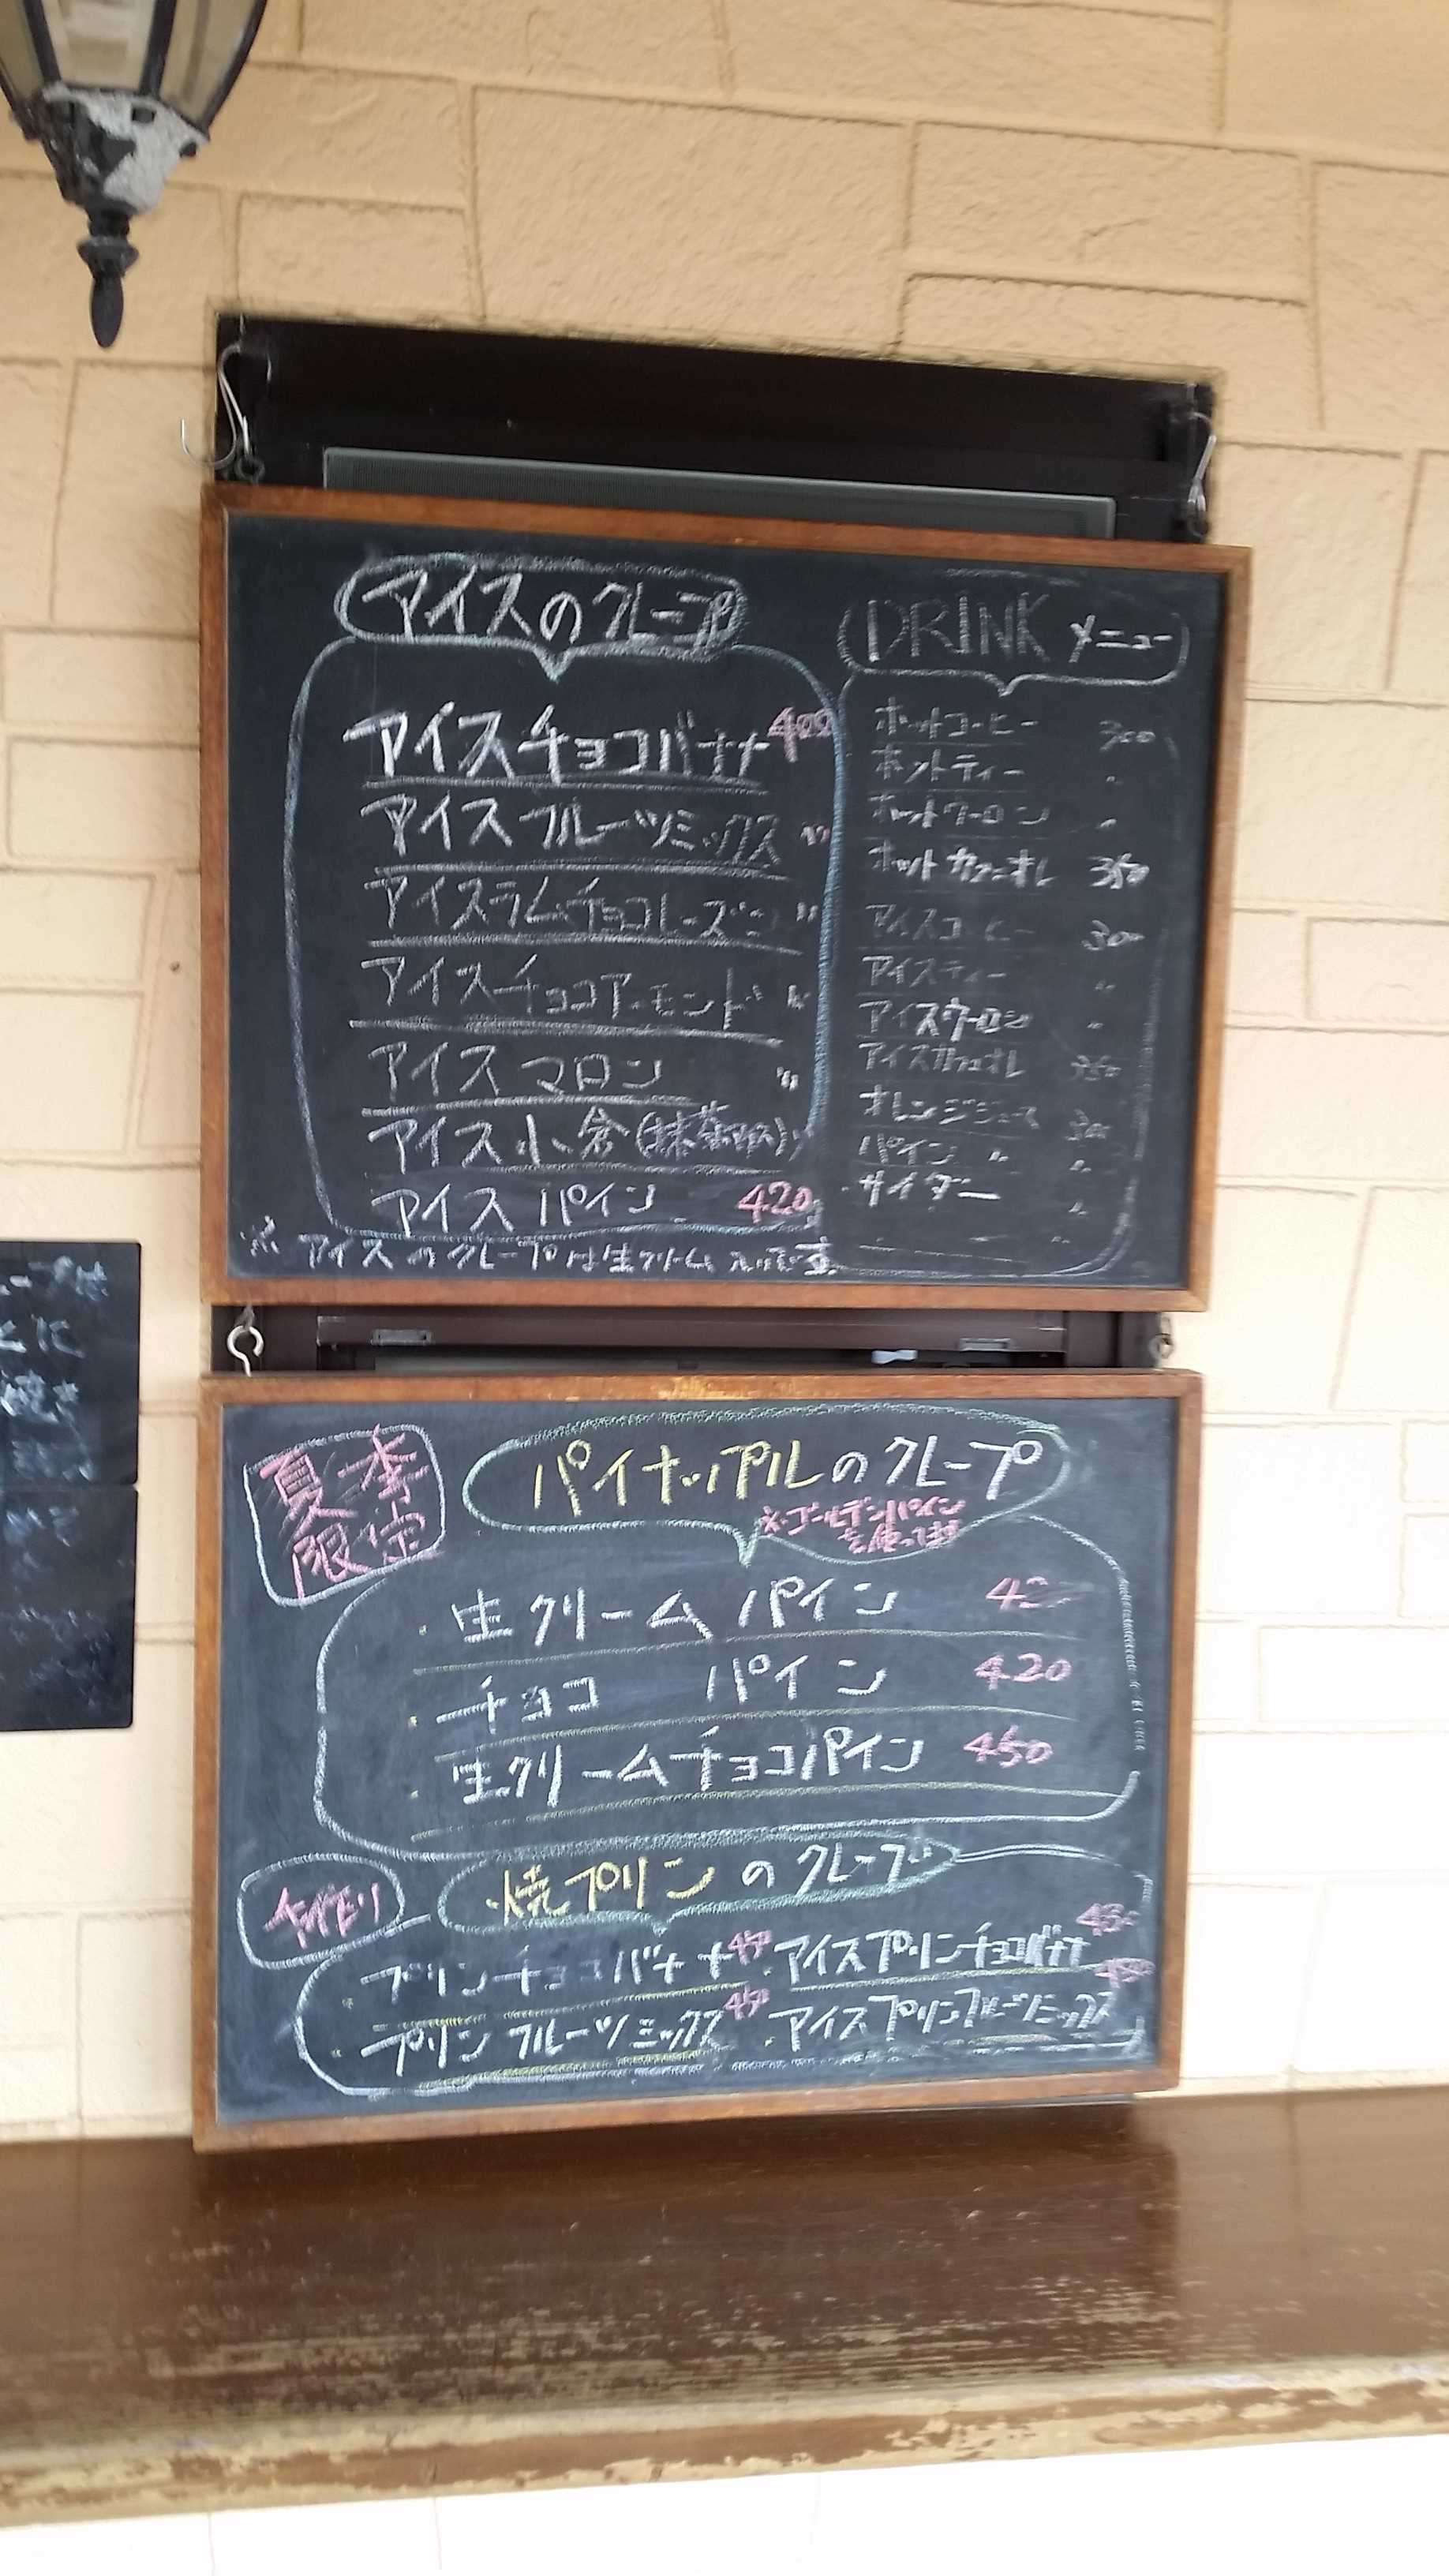 アイスのクレープ
アイスチョコバナナ 400
アイスフルーツミックス 〃
アイスラムチョコレーズン 〃
アイスチョコアーモンド 〃
アイスマロン 〃
アイス小倉(抹茶アイス) 〃
アイスパイン 420
※アイスのクレープは生クリーム入りです
DRINK メニュー
ホットコーヒー 300
ホットティー 〃
ホットウーロン 〃
ホットカフェオレ 350
アイスコーヒー 300
アイスティー 〃
アイスウーロン 〃
アイスカフェオレ 350
オレンジジュース 300
パイン 〃 〃
サイダー 〃
夏季
限定
パイナップルのクレープ
※ゴールデンパイン
を使ってます
生クリームパイン 42
チョコ パイン 420
生クリームチョコパイン 450
手作り
焼プリンのクレープ
プリンチョコバナナ
アイスプリンチョコバナナ
プリンフルーツミックス
アイスプリンフルーツミックス